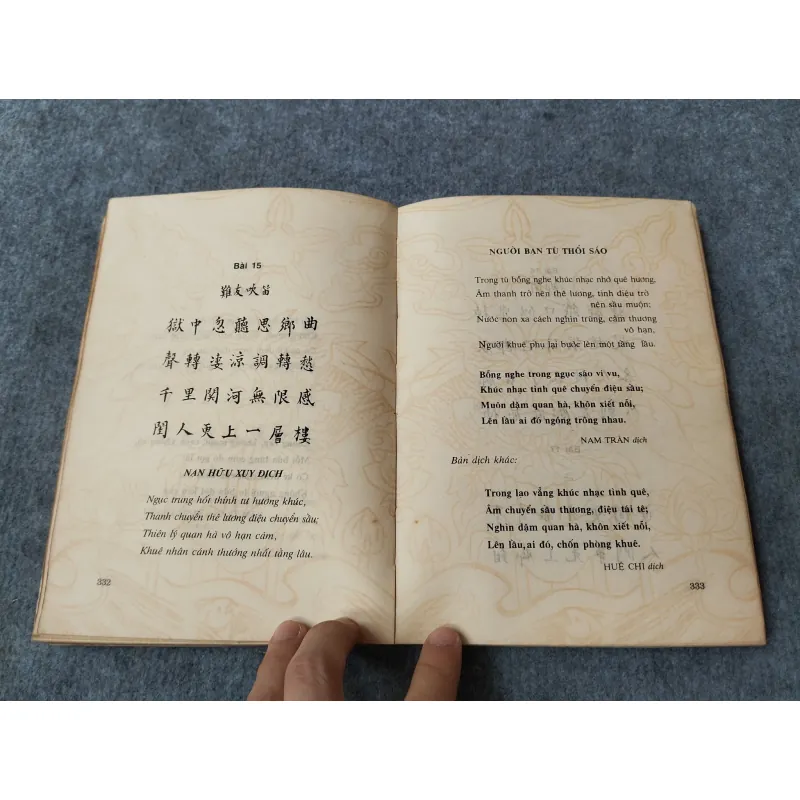 Bài 15
難友吹笛
獄中忽聽思鄉曲
聲轉淒涼調轉愁
千里關河無限感
閨人更上一層樓
NAN HỮU XUY ĐỊCH
Ngục trung hốt thính tư hương khúc,
Thanh chuyển thê lương điệu chuyển sầu;
Thiên lý quan hà vô hạn cảm,
Khuê nhân cánh thướng nhất tằng lâu.
332
NGƯỜI BẠN TÙ THỔI SÁO
Trong tù bỗng nghe khúc nhạc nhớ quê hương,
Âm thanh trở nên thê lương, tình điệu trở
nên sầu muộn;
Nước non xa cách nghìn trùng, cảm thương
vô hạn,
Người khuê phụ lại bước lên một tầng lầu.
Bỗng nghe trong ngục sáo vi vu,
Khúc nhạc tình quê chuyển điệu sầu;
Muôn dặm quan hà, khôn xiết nỗi,
Lên lầu ai đó ngóng trông nhau.
NAM TRÂN dịch
Bản dịch khác:
Trong lao vẳng khúc nhạc tình quê,
Âm chuyển sầu thương, điệu tái tê;
Nghìn dặm quan hà, khôn xiết nỗi,
Lên lầu, ai đó, chốn phòng khuê.
HUỆ CHI dịch
333